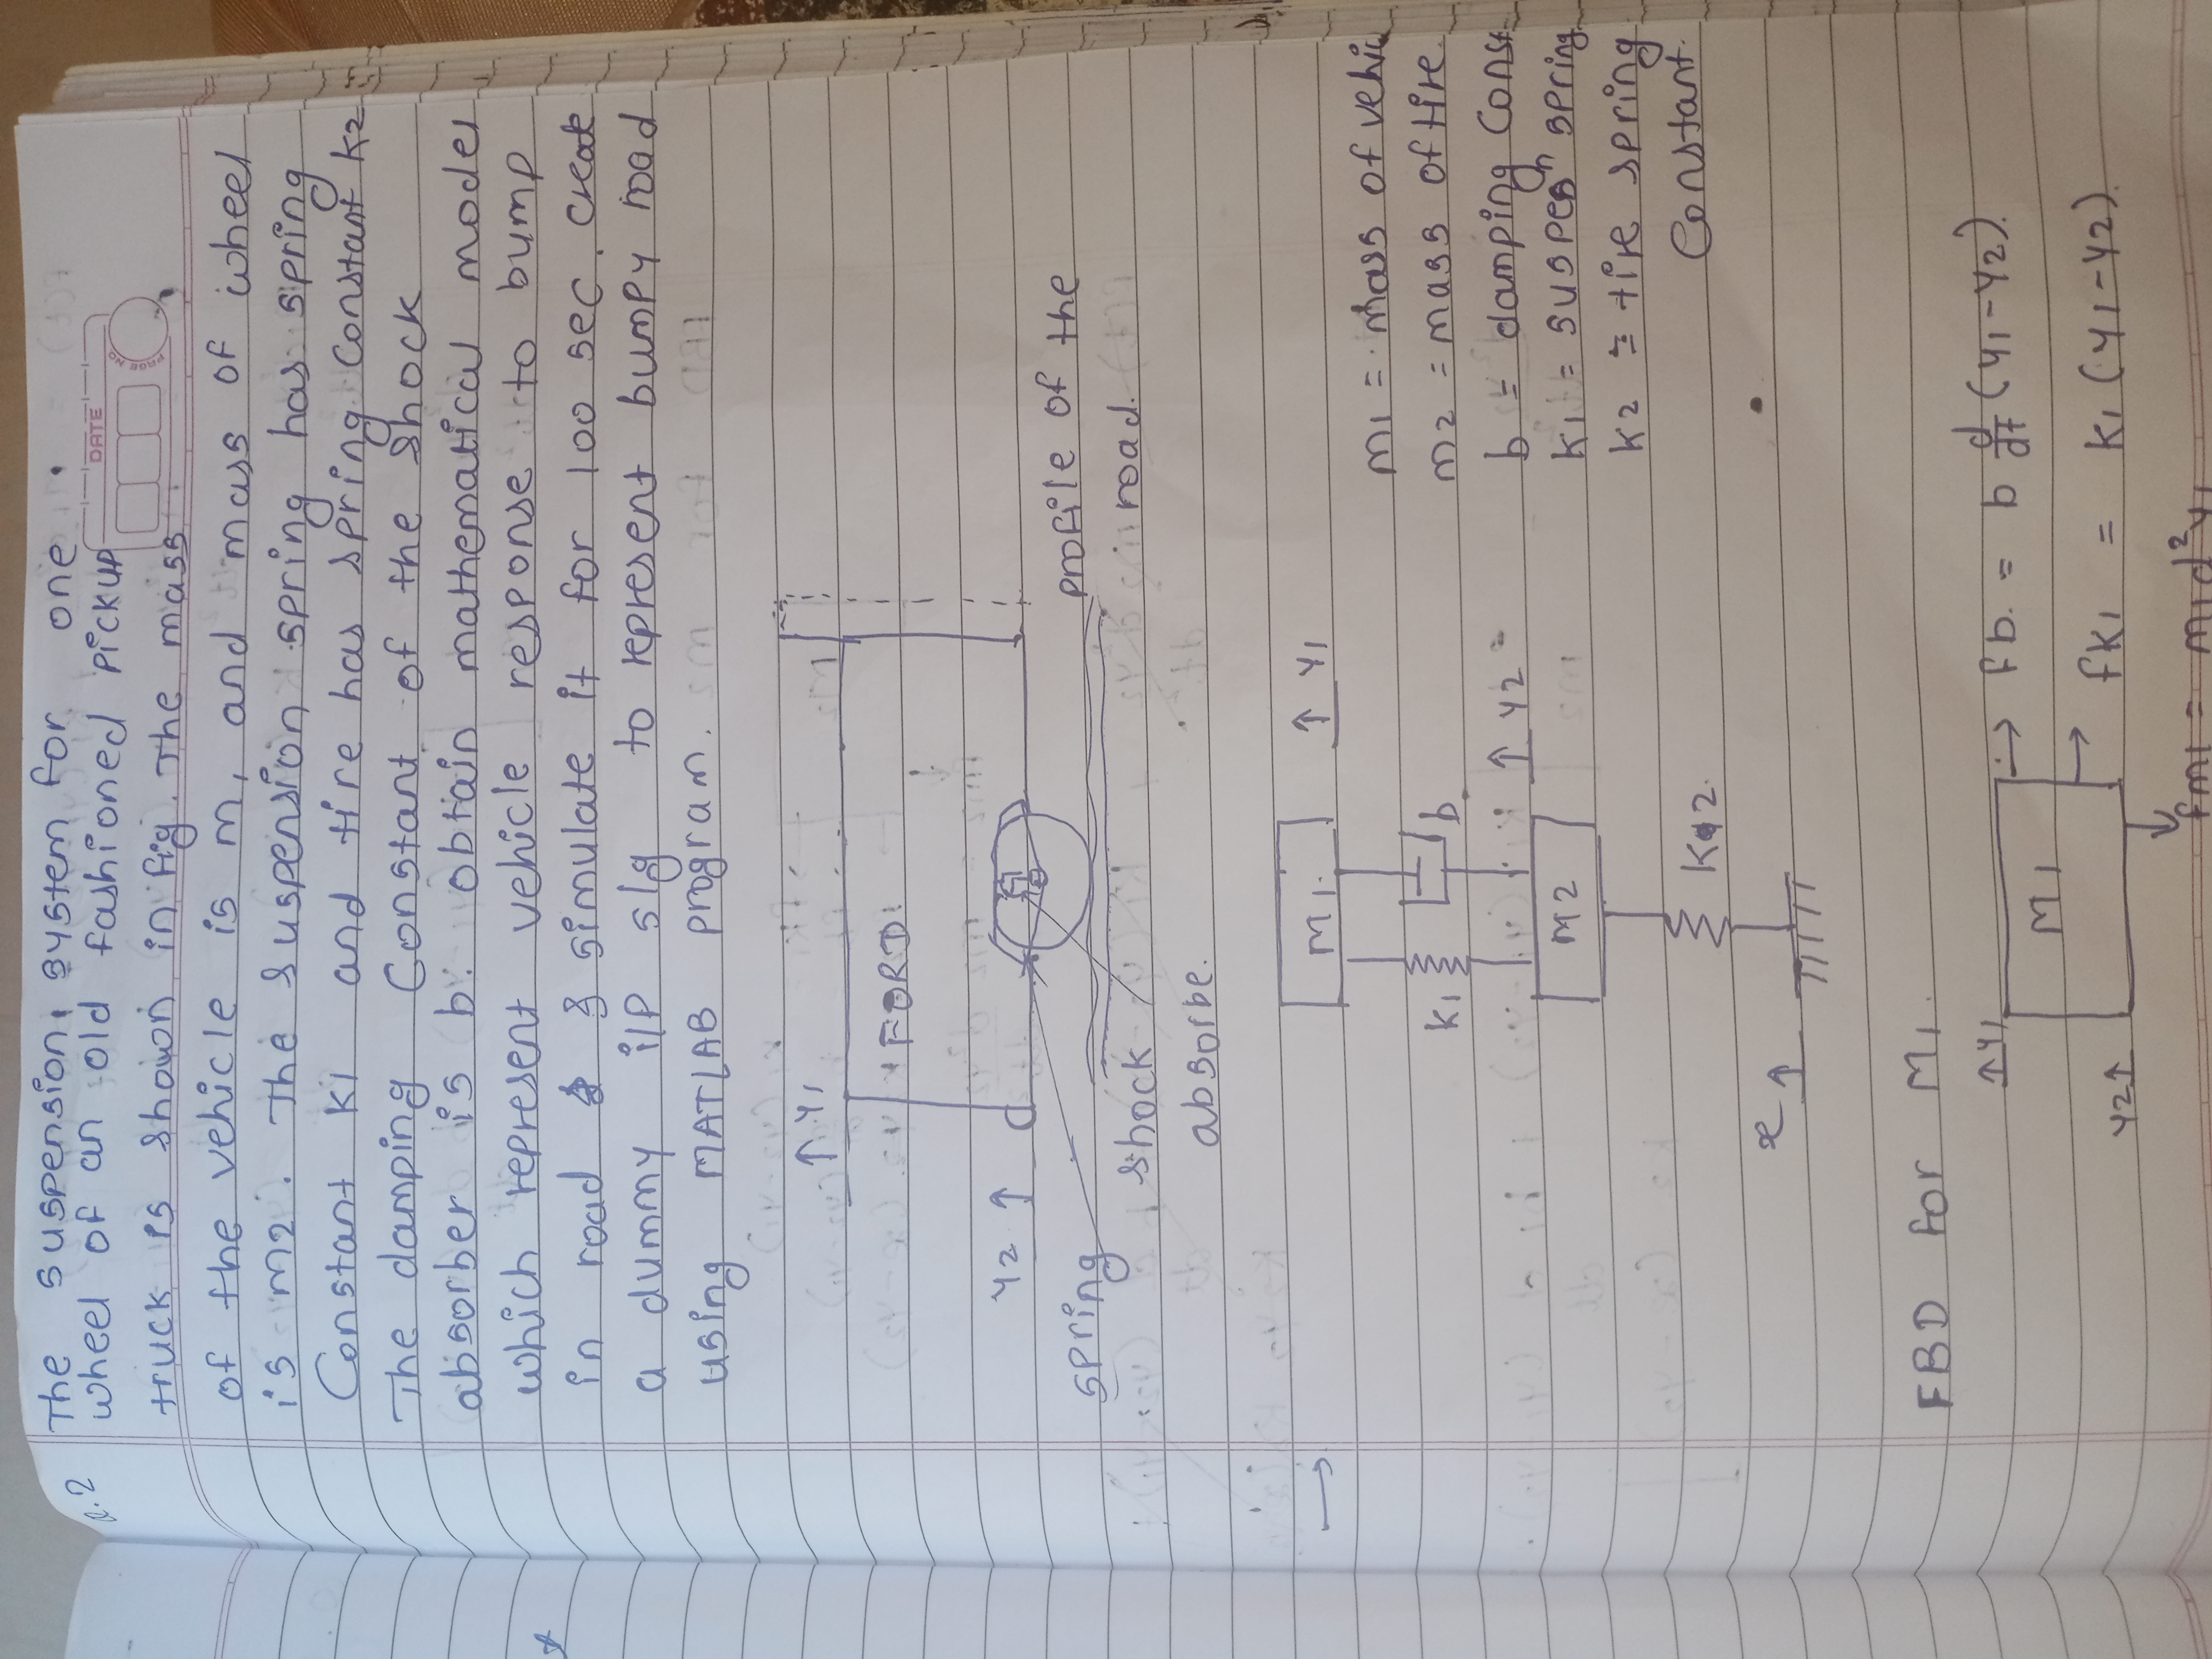 Q.2 The suspension system for one
wheel of an old fashioned pickup
DATE
PAGE NO
truck is shown in fig. The mass
of the vehicle is m, and mass of wheel
is m2. The suspension spring has spring
Constant K1 and tire has spring Constant K2
The damping Constant of the shock
absorber is b. obtain mathematical model
which represent vehicle response to bump
in road & simulate it for 100 sec. Create
a dummy i/P slg to represent bumpy road
using MATLAB program.
↑ y1
FORD
y2 ↑
spring
profile of the
road.
shock
absorbe.
→
M1
↑ y1
m1 = mass of vehi
K1
b
m2 = mass of tire
M2
↑ y2
b = damping Const
K1 = suspen spring
K2 = tire spring
Constant.
K2
x ↑
FBD for M1
↑y1
M1
→ fb = b d/dt (y1-y2)
y2↑
→ fK1 = K1 (y1-y2)
↓
fm1 = m1 d²y1